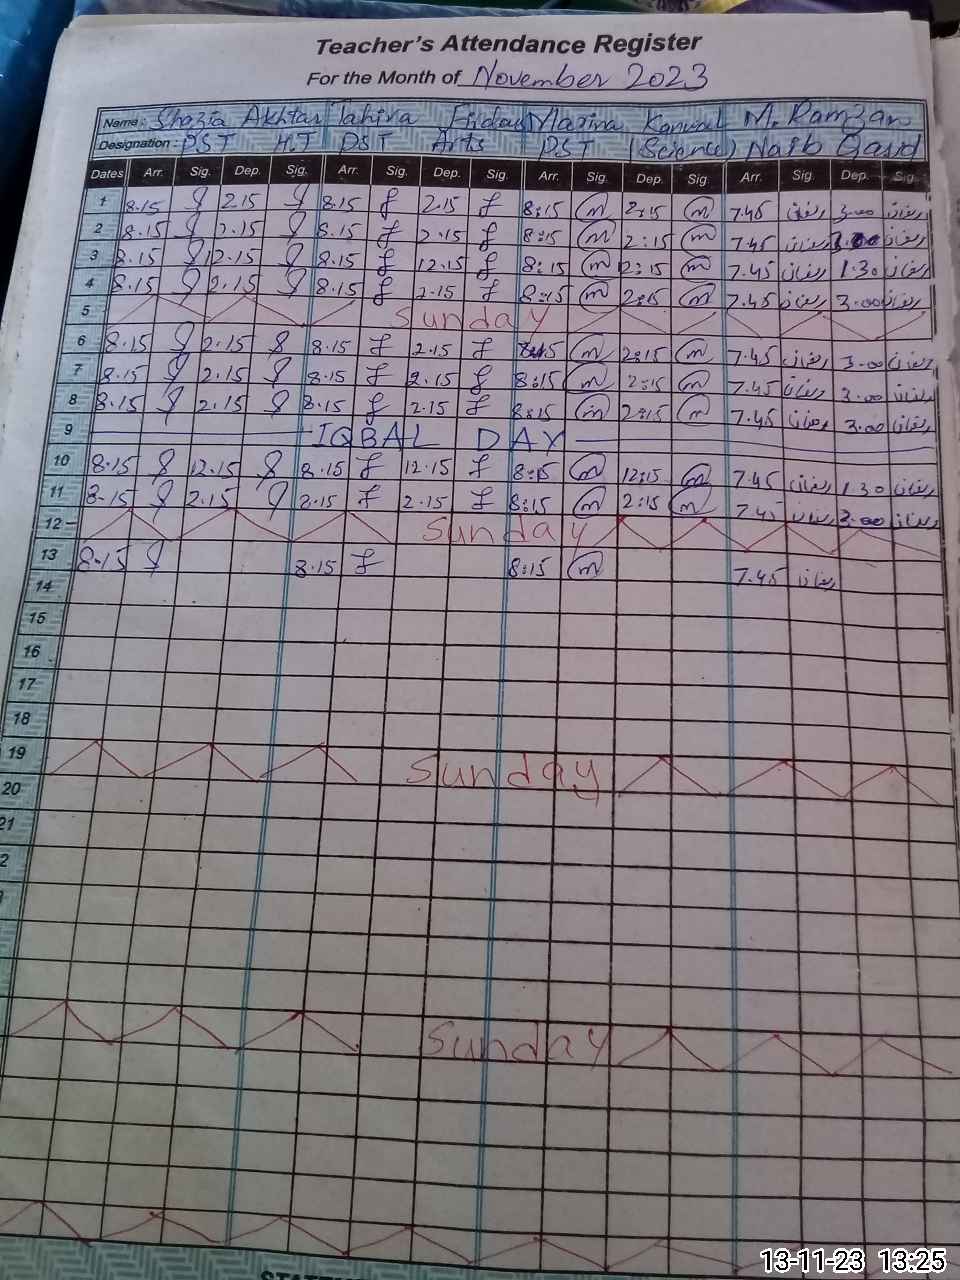 Teacher's Attendance Register
For the Month of November 2023
Name: Shazia Akhtar Tahira Firdaus Marina Kanwal M. Ramzan
Designation: PST H.T PST Arts PST (Science) Naib Qasid
Dates Arr. Sig. Dep. Sig. Arr. Sig. Dep. Sig. Arr. Sig. Dep. Sig. Arr. Sig. Dep. Sig.
1 8.15 2.15 8.15 2.15 8:15 m 2:15 m 7.45 رمضان 3.00 رمضان
2 8.15 2.15 8.15 2.15 8:15 m 2:15 m 7.45 رمضان 3.00 رمضان
3 8.15 12.15 8.15 12.15 8:15 m 12:15 m 7.45 رمضان 1.30 رمضان
4 8.15 2.15 8.15 2.15 8:15 m 2:15 m 7.45 رمضان 3.00 رمضان
5 Sunday
6 8.15 2.15 8.15 2.15 8:15 m 2:15 m 7.45 رمضان 3.00 رمضان
7 8.15 2.15 8.15 2.15 8:15 m 2:15 m 7.45 رمضان 3.00 رمضان
8 8.15 2.15 8.15 2.15 8:15 m 2:15 m 7.45 رمضان 3.00 رمضان
9 IQBAL DAY
10 8.15 12.15 8.15 12.15 8:15 m 12:15 m 7.45 رمضان 1.30 رمضان
11 8.15 2.15 8.15 2.15 8:15 m 2:15 m 7.45 رمضان 3.00 رمضان
12 Sunday
13 8.15 8.15 8:15 m 7.45 رمضان
14
15
16
17
18
19 Sunday
20
21
2
Sunday
13-11-23 13:25